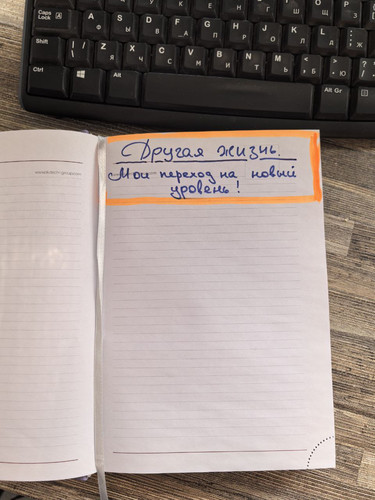 Caps Lock A Ф S Ы D В F А G П H Р J О K Л L Д : ; Ж
Shift | \ / Z Я X Ч C С V М B И N Т M Ь < , Б > . Ю
Ctrl Alt Alt Gr
Другая жизнь.
Мой переход на новый
уровень!